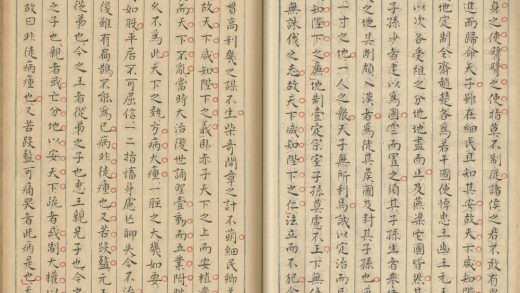 身之使臂臂之使指莫不制從諸侯之君不敢有
進而歸命天子雖在細民且知其安故天下咸知
地定制令齊趙楚各爲若干國使悼惠王幽王元
以次各受祖之分地地盡而止及燕梁它國皆然
子孫少者建以爲國空而置之須其子孫生者舉使
之地其削頗入漢者爲徙其侯國及封其子孫也
一寸之地一人之衆天子無所利焉誠以定治而已
知陛下之廉地制壹定宗室子孫莫慮不王下無倍
無誅伐之志故天下咸知陛下之仁法立而不犯令
貫高利幾之謀不生柴奇開章之計不萌細民鄉
故天下咸知陛下之義卧赤子天下之上而安植
而天下不亂當時大治後世誦聖壹動而五業附
久不爲此天下之埶方病大瘇一脛之大幾如要
如股平居不可屈信一二指搐身慮亡聊失今不治
後雖有扁鵲不能爲已病非徒瘇也又苦蹠盭元王
從弟也今之王者從弟之子也惠王親兄子也今
之子也親者或亡分地以安天下疏者或制大權以
故曰非徒病瘇也又苦蹠盭可痛哭者此病是也